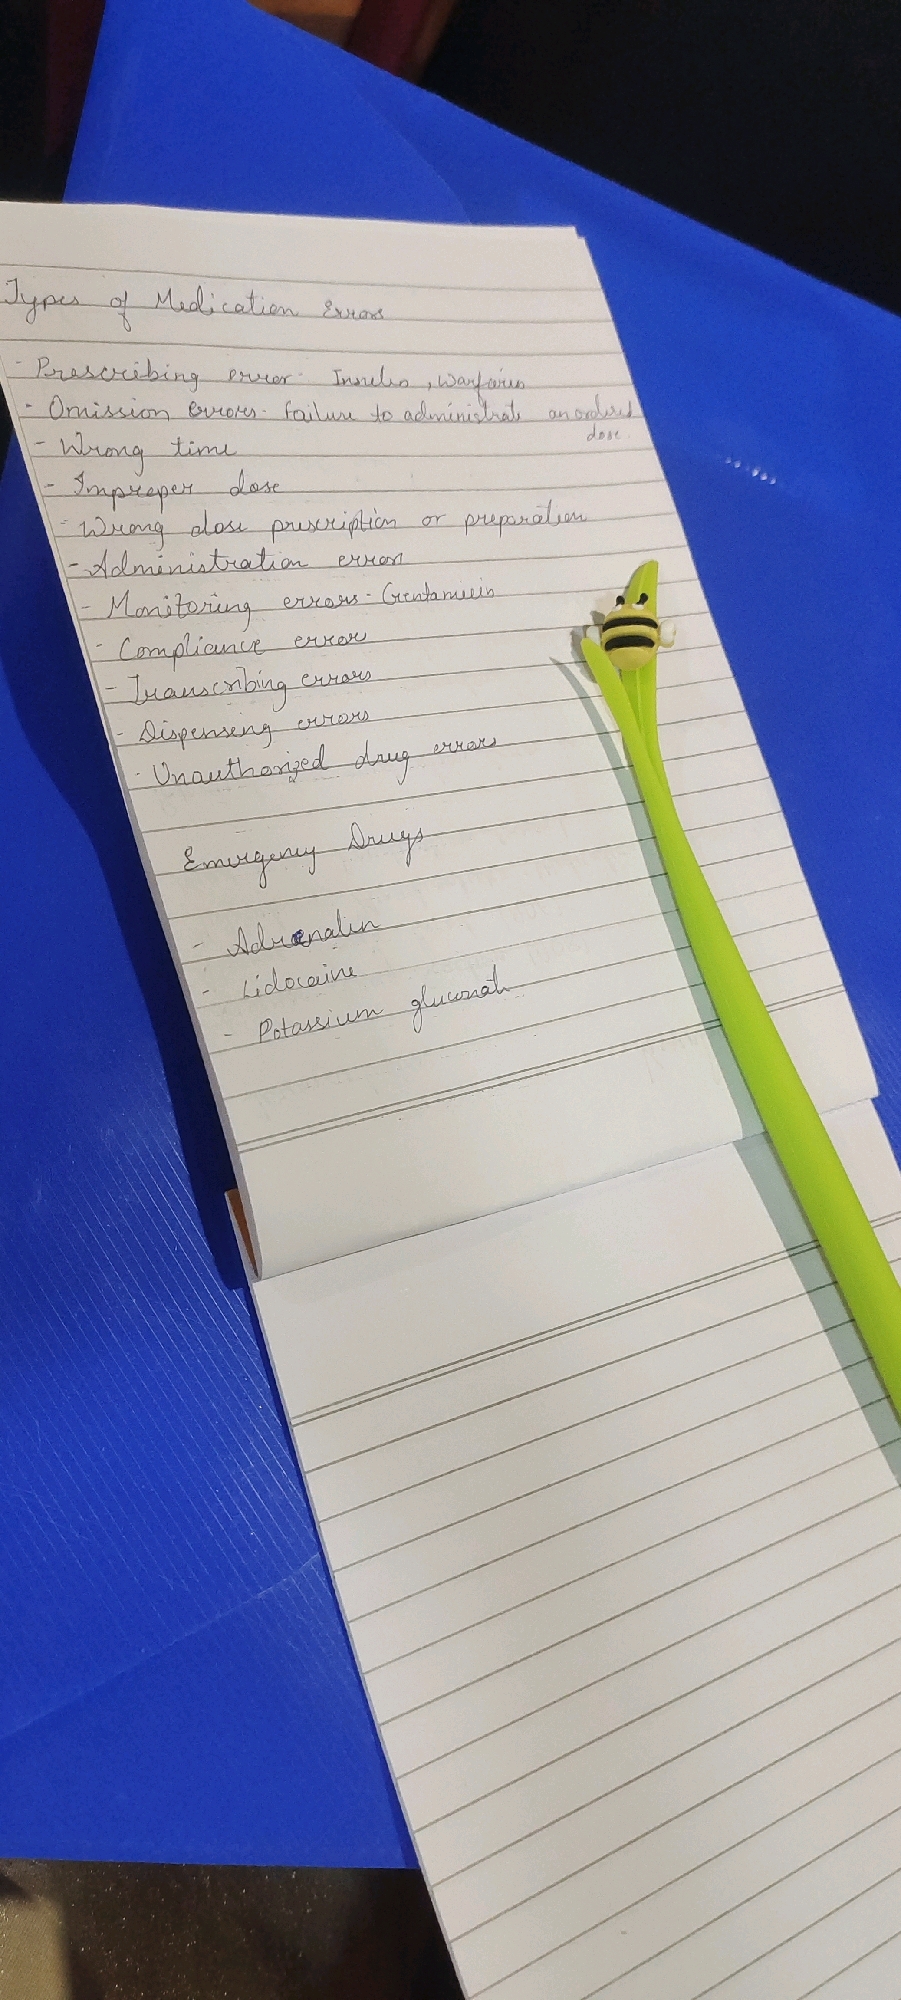 Types of Medication Errors
- Prescribing error- Insulin, Warfarin
- Omission Errors- failure to administrate an ordered
dose.
- Wrong time
- Improper dose
- Wrong dose prescription or preparation
- Administration error
- Monitoring errors- Gentamicin
- Compliance error
- Transcribing errors
- Dispensing errors
- Unauthorized drug errors
Emergency Drugs
- Adrenalin
- Lidocaine
- Potassium gluconate